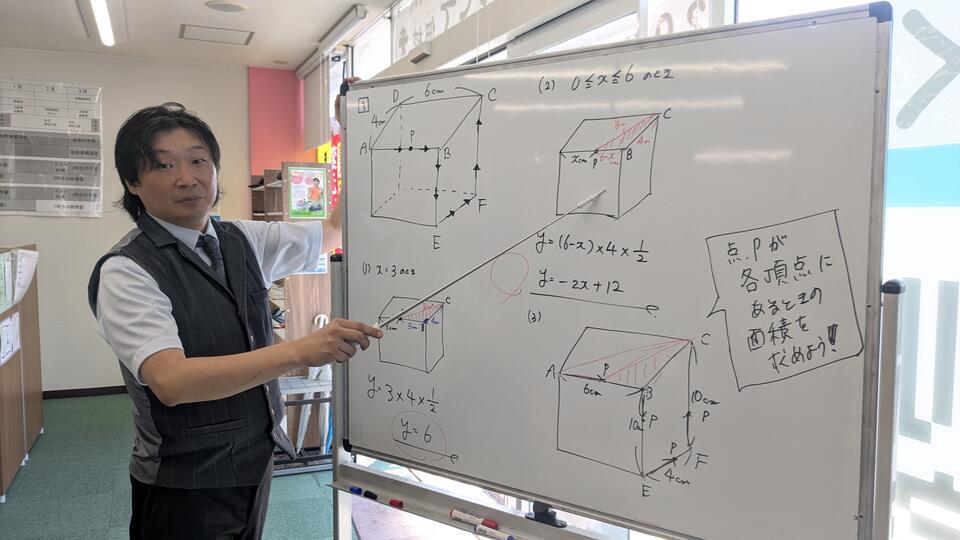 3
D 6cm C
4cm
A P B
F
E
(1) x=3のとき
C
3cm 3cm 4cm
y=3×4×1/2
y=6
(2) 0≦x≦6のとき
C
4cm
xcm P 6-x B
y=(6-x)×4×1/2
y=-2x+12
(3)
C
A P
6cm B
10cm
P P
10cm P
F
E 4cm
点Pが
各頂点に
あるときの
面積を
求めよう!
1月 2月 3月